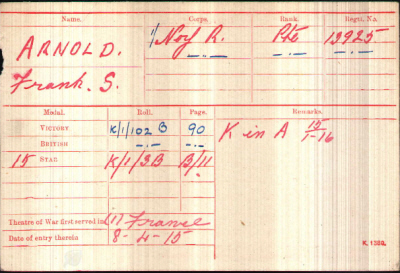 Name. Corps. Rank. Regtl. No.
ARNOLD. 1/Norf R. Pte 13925
Frank. S. -"- -"-
Medal. Roll. Page. Remarks.
VICTORY K/1/102 B 90 K in A 15/1-16
BRITISH -"- -"-
15 STAR K/1/3B B/11
Theatre of War first served in (1) France
Date of entry therein 8-4-15
K. 1380.